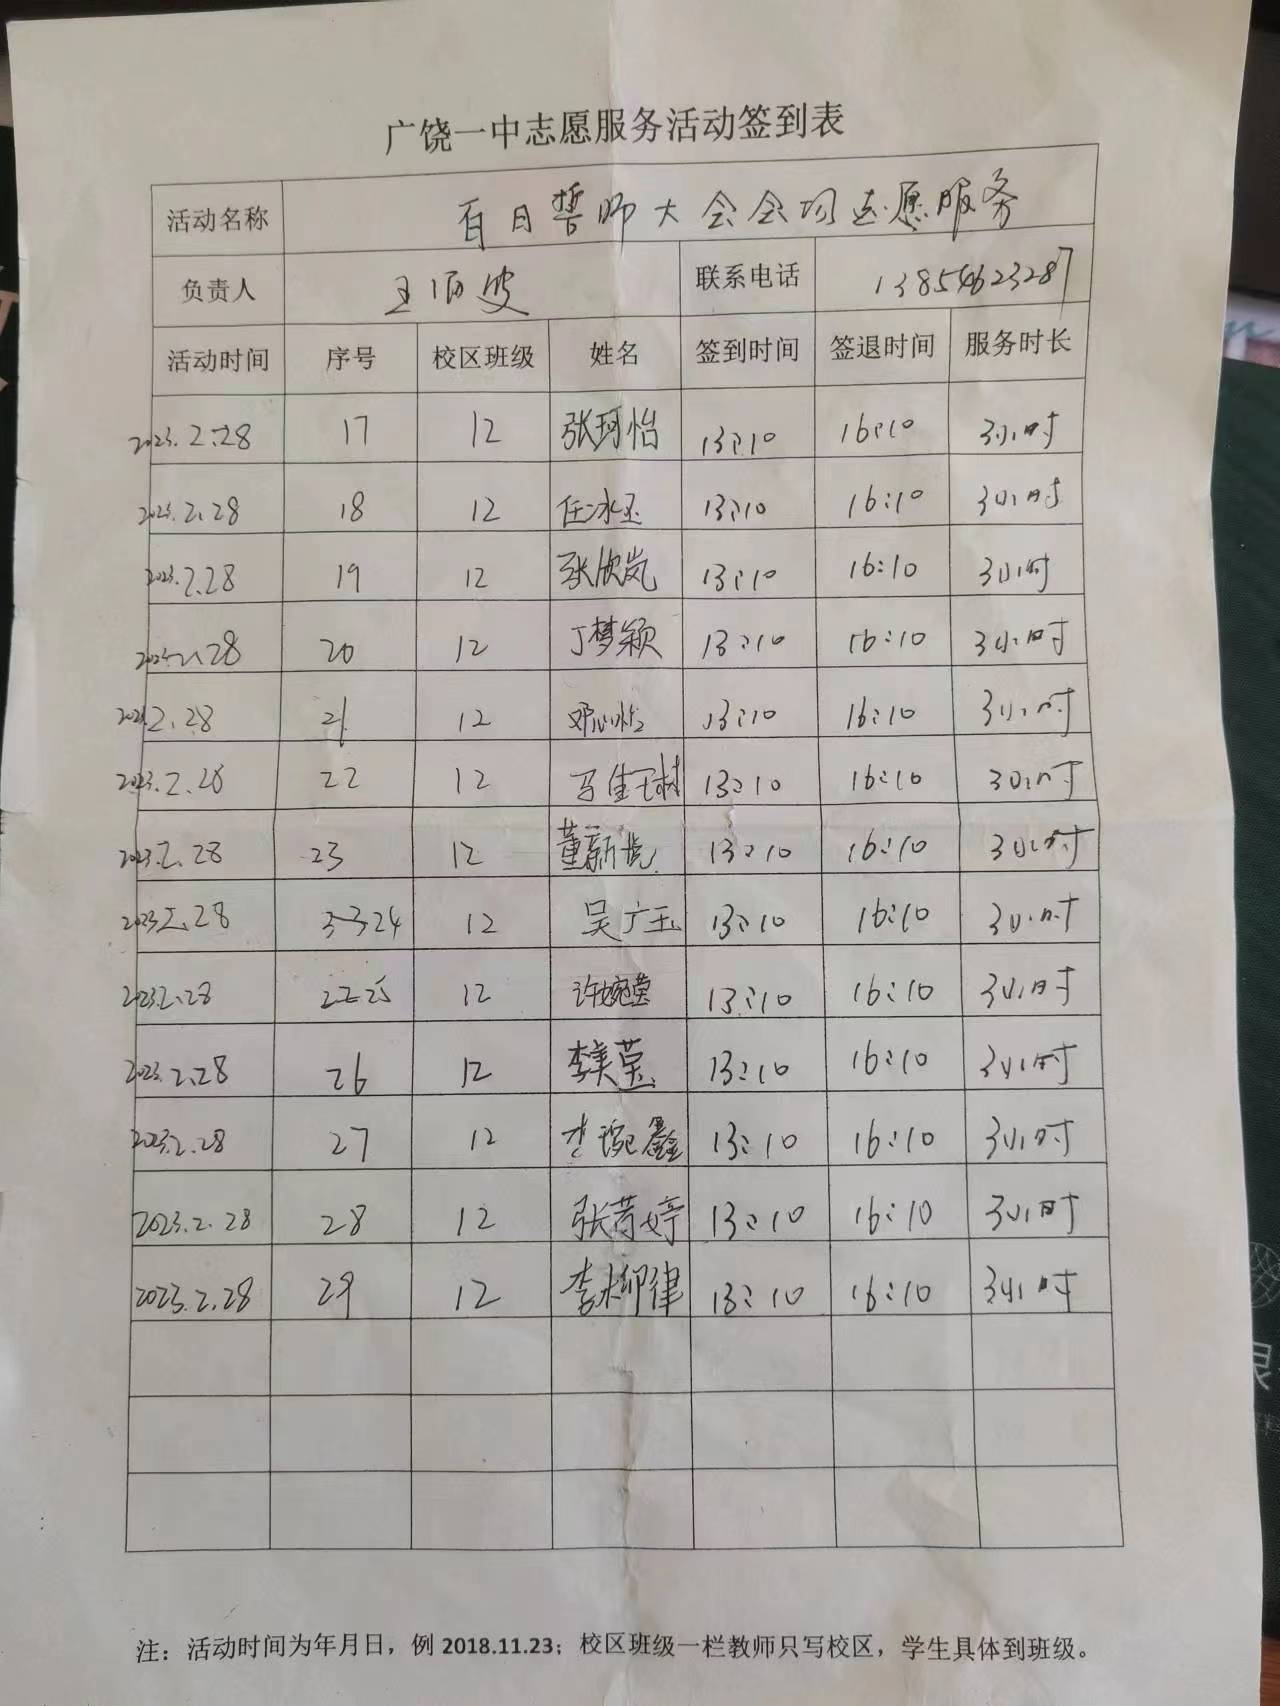 广饶一中志愿服务活动签到表
活动名称 百日誓师大会会场志愿服务
负责人 王 波 联系电话 13854623287
活动时间 序号 校区班级 姓名 签到时间 签退时间 服务时长
2023.2.28 17 12 张珂怡 13:10 16:10 3小时
2023.2.28 18 12 任冰玉 13:10 16:10 3小时
2023.2.28 19 12 张欣岚 13:10 16:10 3小时
2023.2.28 20 12 丁梦颖 13:10 16:10 3小时
2023.2.28 21 12 邓心怡 13:10 16:10 3小时
2023.2.28 22 12 马佳 13:10 16:10 3小时
2023.2.28 23 12 董新悦 13:10 16:10 3小时
2023.2.28 24 12 吴广玉 13:10 16:10 3小时
2023.2.28 25 12 许婉莹 13:10 16:10 3小时
2023.2.28 26 12 李美莹 13:10 16:10 3小时
2023.2.28 27 12 李琬鑫 13:10 16:10 3小时
2023.2.28 28 12 张芳婷 13:10 16:10 3小时
2023.2.28 29 12 李柳律 13:10 16:10 3小时
注：活动时间为年月日，例 2018.11.23；校区班级一栏教师只写校区，学生具体到班级。